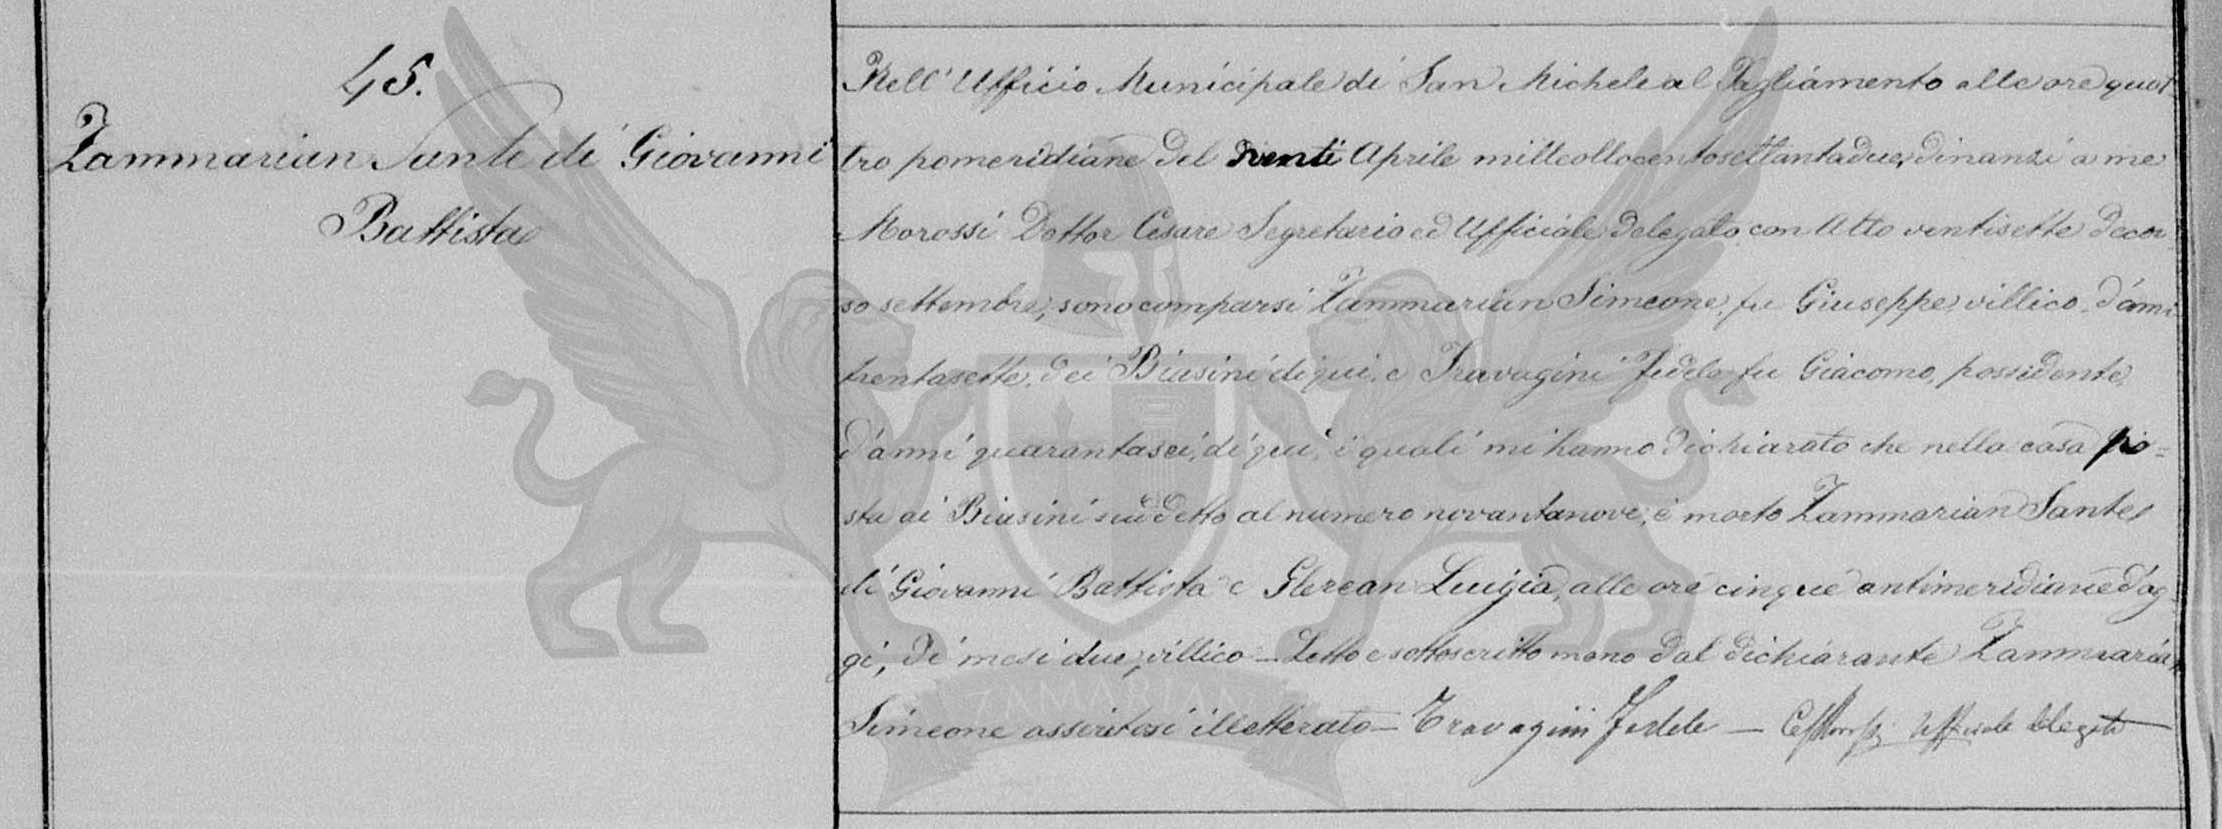 45.
Zammarian Sante di Giovanni
Battista
Nell' Ufficio Municipale di San Michele al Tagliamento alle ore quat-
tro pomeridiane del venti Aprile milleottocentosettantadue, dinanzi a me
Morossi Dottor Cesare Segretario ed Ufficiale delegato con Atto ventisette decor-
so settembre, sono comparsi Zammarian Simeone fu Giuseppe, villico, d'anni
trentasette, dei Biasini di qui, e Travagini Fedele fu Giacomo, possidente,
d'anni quarantasei, di qui, i quali mi hanno dichiarato che nella casa po=
sta ai Biasini suddetto al numero novantanove, è morto Zammarian Sante
di Giovanni Battista e Glerean Luigia, alle ore cinque antimeridiane d'og-
gi, di mesi due, villico – Letto e sottoscritto meno dal dichiarante Zammarian
Simeone asseritosi illetterato – Travagini Fedele – Uffiziale delegato
ZAMARIAN